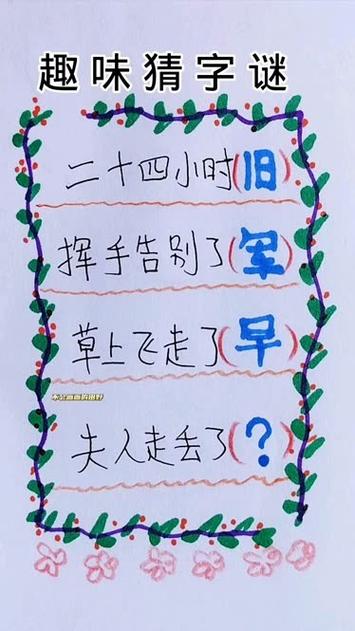 趣味猜字谜
二十四小时(旧)
挥手告别了(军)
草上飞走了(早)
不会画画的很好
夫人走丢了(?)